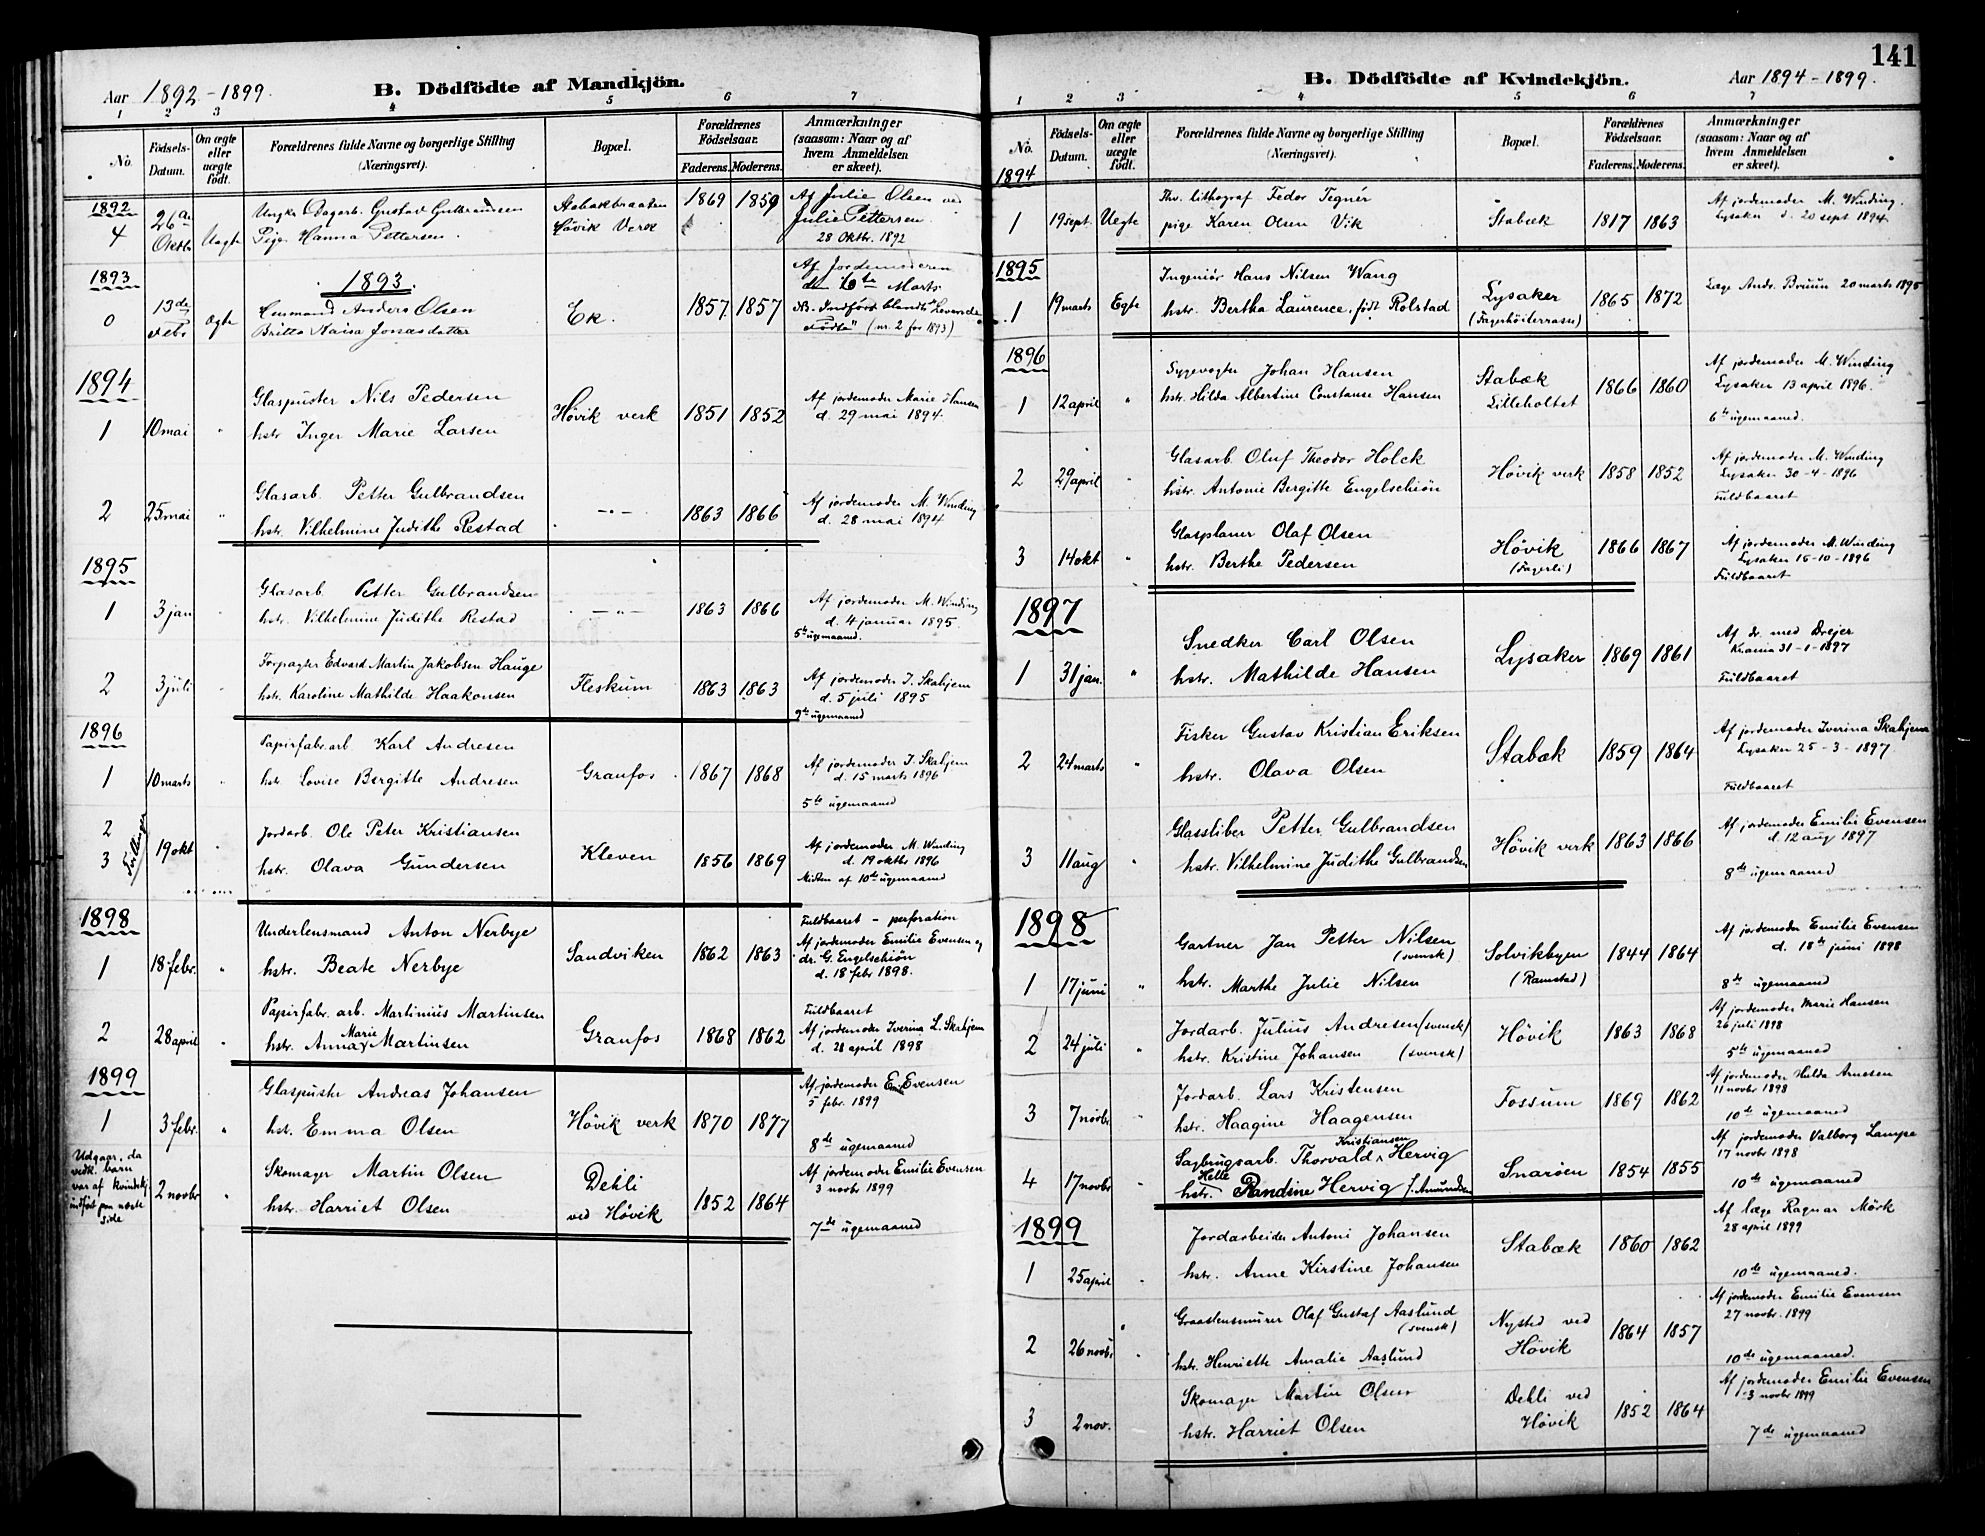 Aar 1892-1899.
B. Dödfödte af Mandkjön.
1 2 3 4 5 6 7
No.
Födsels-Datum.
Om ægte eller uægte födt.
Forældrenes fulde Navne og borgerlige Stilling
(Næringsvei).
Bopæl.
Forældrenes Födselsaar.
Faderens. Moderens.
Anmærkninger
(saasom: Naar og af
hvem Anmeldelsen
er skeet).
1892
4 26de Oktb. Uægte
Ungk. Dagarb. Gustav Gulbrandsen
Pige Hanna Pettersen.
Stabækbraaten
Høvik Verk
1869 1859
Af Julie Olsen ved
Julie Pettersen.
28 Oktbr. 1892
1893
1893.
0 13de Febr ægte
Husmand Anders Olsen
Britta Kaisa Jonasdatter
Ek.
1857 1857
Af Jordemoderen
d. 10de Marts
NB. Indført blandt "Levende
Fødte" (nr. 2 for 1893)
1894
1 10 mai "
Glaspuster Nils Pedersen
hstr. Inger Marie Larsen
Høvik verk
1851 1852
Af jordemoder Marie Hansen
d. 29 mai 1894.
2 25 mai "
Glasarb. Petter Gulbrandsen
hstr. Vilhelmine Judithe Restad
- " -
1863 1866
Af jordemoder M. Winding
d. 28 mai 1894
1895
1 3 jan "
Glasarb. Petter Gulbrandsen
hstr. Vilhelmine Judithe Restad
- " -
1863 1866
Af jordemoder M. Winding
d. 4 januar 1895.
5te ugemaaned.
2 3 juli "
Forpagter Edvard Martin Jakobsen Hauge
hstr. Karoline Mathilde Haakonsen
Fleskum
1863 1863
Af jordemoder I. Skahjem
d. 5 juli 1895
9de ugemaaned
1896
1 10 marts "
Papirfabr.arb. Karl Andresen
hstr. Lovise Bergitte Andresen
Granfos
1867 1868
Af jordemoder I. Skahjem
d. 15 marts 1896
5te ugemaaned
2
3 Tvillinger 19 okt "
Jordarb. Ole Peter Kristiansen
hstr. Olava Gundersen
Kleven
1856 1869
Af jordemoder M. Winding
d. 19 oktbr 1896
Midten af 10de ugemaaned
1898
1 18 febr. "
Underlensmand Anton Nerbye
hstr. Beate Nerbye
Sandviken
1862 1863
Fuldbaaret - perforation
Af jordemoder Emilie Evensen og
dr. G. Engelschiøn
d. 18 febr 1898.
2 28 april "
Papirfabr. arb. Martinius Martinsen
hstr. Anna Marie Martinsen
Granfos
1868 1862
Fuldbaaret
Af jordemoder Iverina L. Skahjem
d. 28 april 1898
1899
1 3 febr. "
Glaspuster Andreas Johansen
hst. Emma Olsen
Høvik verk
1870 1877
Af jordemoder Em. Evensen
5 febr. 1899
8de ugemaaned
Udgaar, da
vedk. barn
var af kvindekj.
indført paa næste
side
2 novbr "
Skomager Martin Olsen
hstr. Harriet Olsen
Dehli
ved Høvik
1852 1864
Af jordemoder Emilie Evensen
3 novbr 1899
7de ugemaaned
141
B. Dödfödte af Kvindekjön.
Aar 1894-1899.
1 2 3 4 5 6 7
No.
Födsels-Datum.
Om ægte eller uægte födt.
Forældrenes fulde Navne og borgerlige Stilling
(Næringsvei).
Bopæl.
Forældrenes Födselsaar.
Faderens. Moderens.
Anmærkninger
(saasom: Naar og af
hvem Anmeldelsen
er skeet).
1894
1 19 sept. Uegte
Fhv. lithograf Fedor Tegnér
pige Karen Olsen Vik
Stabæk
1817 1863
Af jordemoder M. Winding.
Lysaker d. 20 sept 1894.
1895
1 19 marts Egte
Ingeniør Hans Nilsen Wang
hstr. Bertha Laurence, født Rolstad
Lysaker
(Fagerhøiterrasse)
1865 1872
Læge Andr. Bruun 20 marts 1895
1896
1 12 april "
Sygevogter Johan Hansen
hstr. Hilda Albertine Constanse Hansen
Stabæk
Lilleholtet
1866 1860
Af jordemoder M. Winding
Lysaker 13 april 1896.
6te ugemaaned.
2 29 april "
Glasarb. Oluf Theodor Holck
hstr. Antonie Bergitte Engelschiøn
Høvik verk
1858 1852
Af jordemoder M. Winding
Lysaker 30-4-1896
Fuldbaaret
3 14 okt "
Glasplaner Olaf Olsen
hstr. Berthe Pedersen
Høvik
(Fagerli)
1866 1867
Af jordemoder M. Winding
Lysaker 15-10-1896
Fuldbaaret
1897
1 31 jan. "
Snedker Carl Olsen
hstr. Mathilde Hansen
Lysaker
1869 1861
Af dr. med Drejer
Krania 31-1-1897
Fuldbaaret
2 24 marts "
Fisker Gustav Kristian Eriksen
hstr. Olava Olsen
Stabæk
1859 1864
Af jordemoder Iverina Skahjem
Lysaker 25-3-1897.
Fuldbaaret
3 11 aug "
Glassliber Petter Gulbrandsen
hstr. Vilhelmine Judithe Gulbrandsen
Høvik verk
1863 1866
Af jordemoder Emilie Evensen
d. 12 aug 1897
8de ugemaaned
1898
1 17 juni "
Gartner Jan Petter Nilsen
(svensk)
hstr. Marthe Julie Nilsen
Solvikbyen
(Ramstad)
1844 1864
Af jordemoder Emilie Evensen
d. 18de juni 1898
8de ugemaaned
2 24 juli "
Jordarb. Julius Andresen (svensk)
hstr. Kristine Johansen (svensk)
Høvik
1863 1868
Af jordemoder Marie Hansen
26 juli 1898
5te ugemaaned
3 7 novbr "
Jordarb. Lars Kristensen
hstr. Haagine Haagensen
Fossum
1869 1862
Af jordemoder Hulda Arnesen
11 novbr 1898
10de ugemaaned
4 17 novbr "
Sagbrugsarb. Thorvald Kristiansen Hervig
hstr. Helle Randine Hervig f. Amundsen
Snarøen
1854 1855
Af jordemoder Valborg Lampe
17 novbr 1898
10de ugemaaned
1899
1 25 april "
Jordarbeider Antoni Johansen
hstr. Anne Kirstine Johansen
Stabæk
1860 1862
Af læge Ragnar Mörk
28 april 1899
10de ugemaaned.
2 26 novbr. "
Graastensmurer Olaf Gustaf Aaslund
(svensk)
hstr. Henriette Amalie Aaslund
Nysted ved
Høvik
1864 1857
Af jordemoder Emilie Evensen
27 novbr. 1899
10de ugemaaned.
3 2 nov.
Skomager Martin Olsen
hstr. Harriet Olsen
Dehli ved
Høvik
1852 1864
Af jordemoder Emilie Evensen
3 novbr 1899
7de ugemaaned